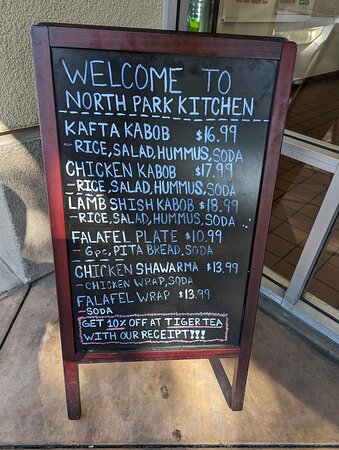 WELCOME TO
NORTH PARK KITCHEN
KAFTA KABOB $16.99
-RICE, SALAD, HUMMUS, SODA
CHICKEN KABOB $17.99
-RICE, SALAD, HUMMUS, SODA
LAMB SHISH KABOB $18.99
-RICE, SALAD, HUMMUS, SODA
FALAFEL PLATE $10.99
-6pc, PITA BREAD, SODA
CHICKEN SHAWARMA $13.99
-CHICKEN WRAP, SODA
FALAFEL WRAP $13.99
-SODA
GET 10% OFF AT TIGER TEA
WITH OUR RECEIPT!!!